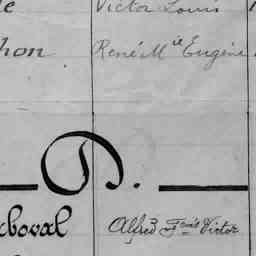 Victor Louis
hon René Mie Eugène
D.
kboval Alfred Fçois Victor